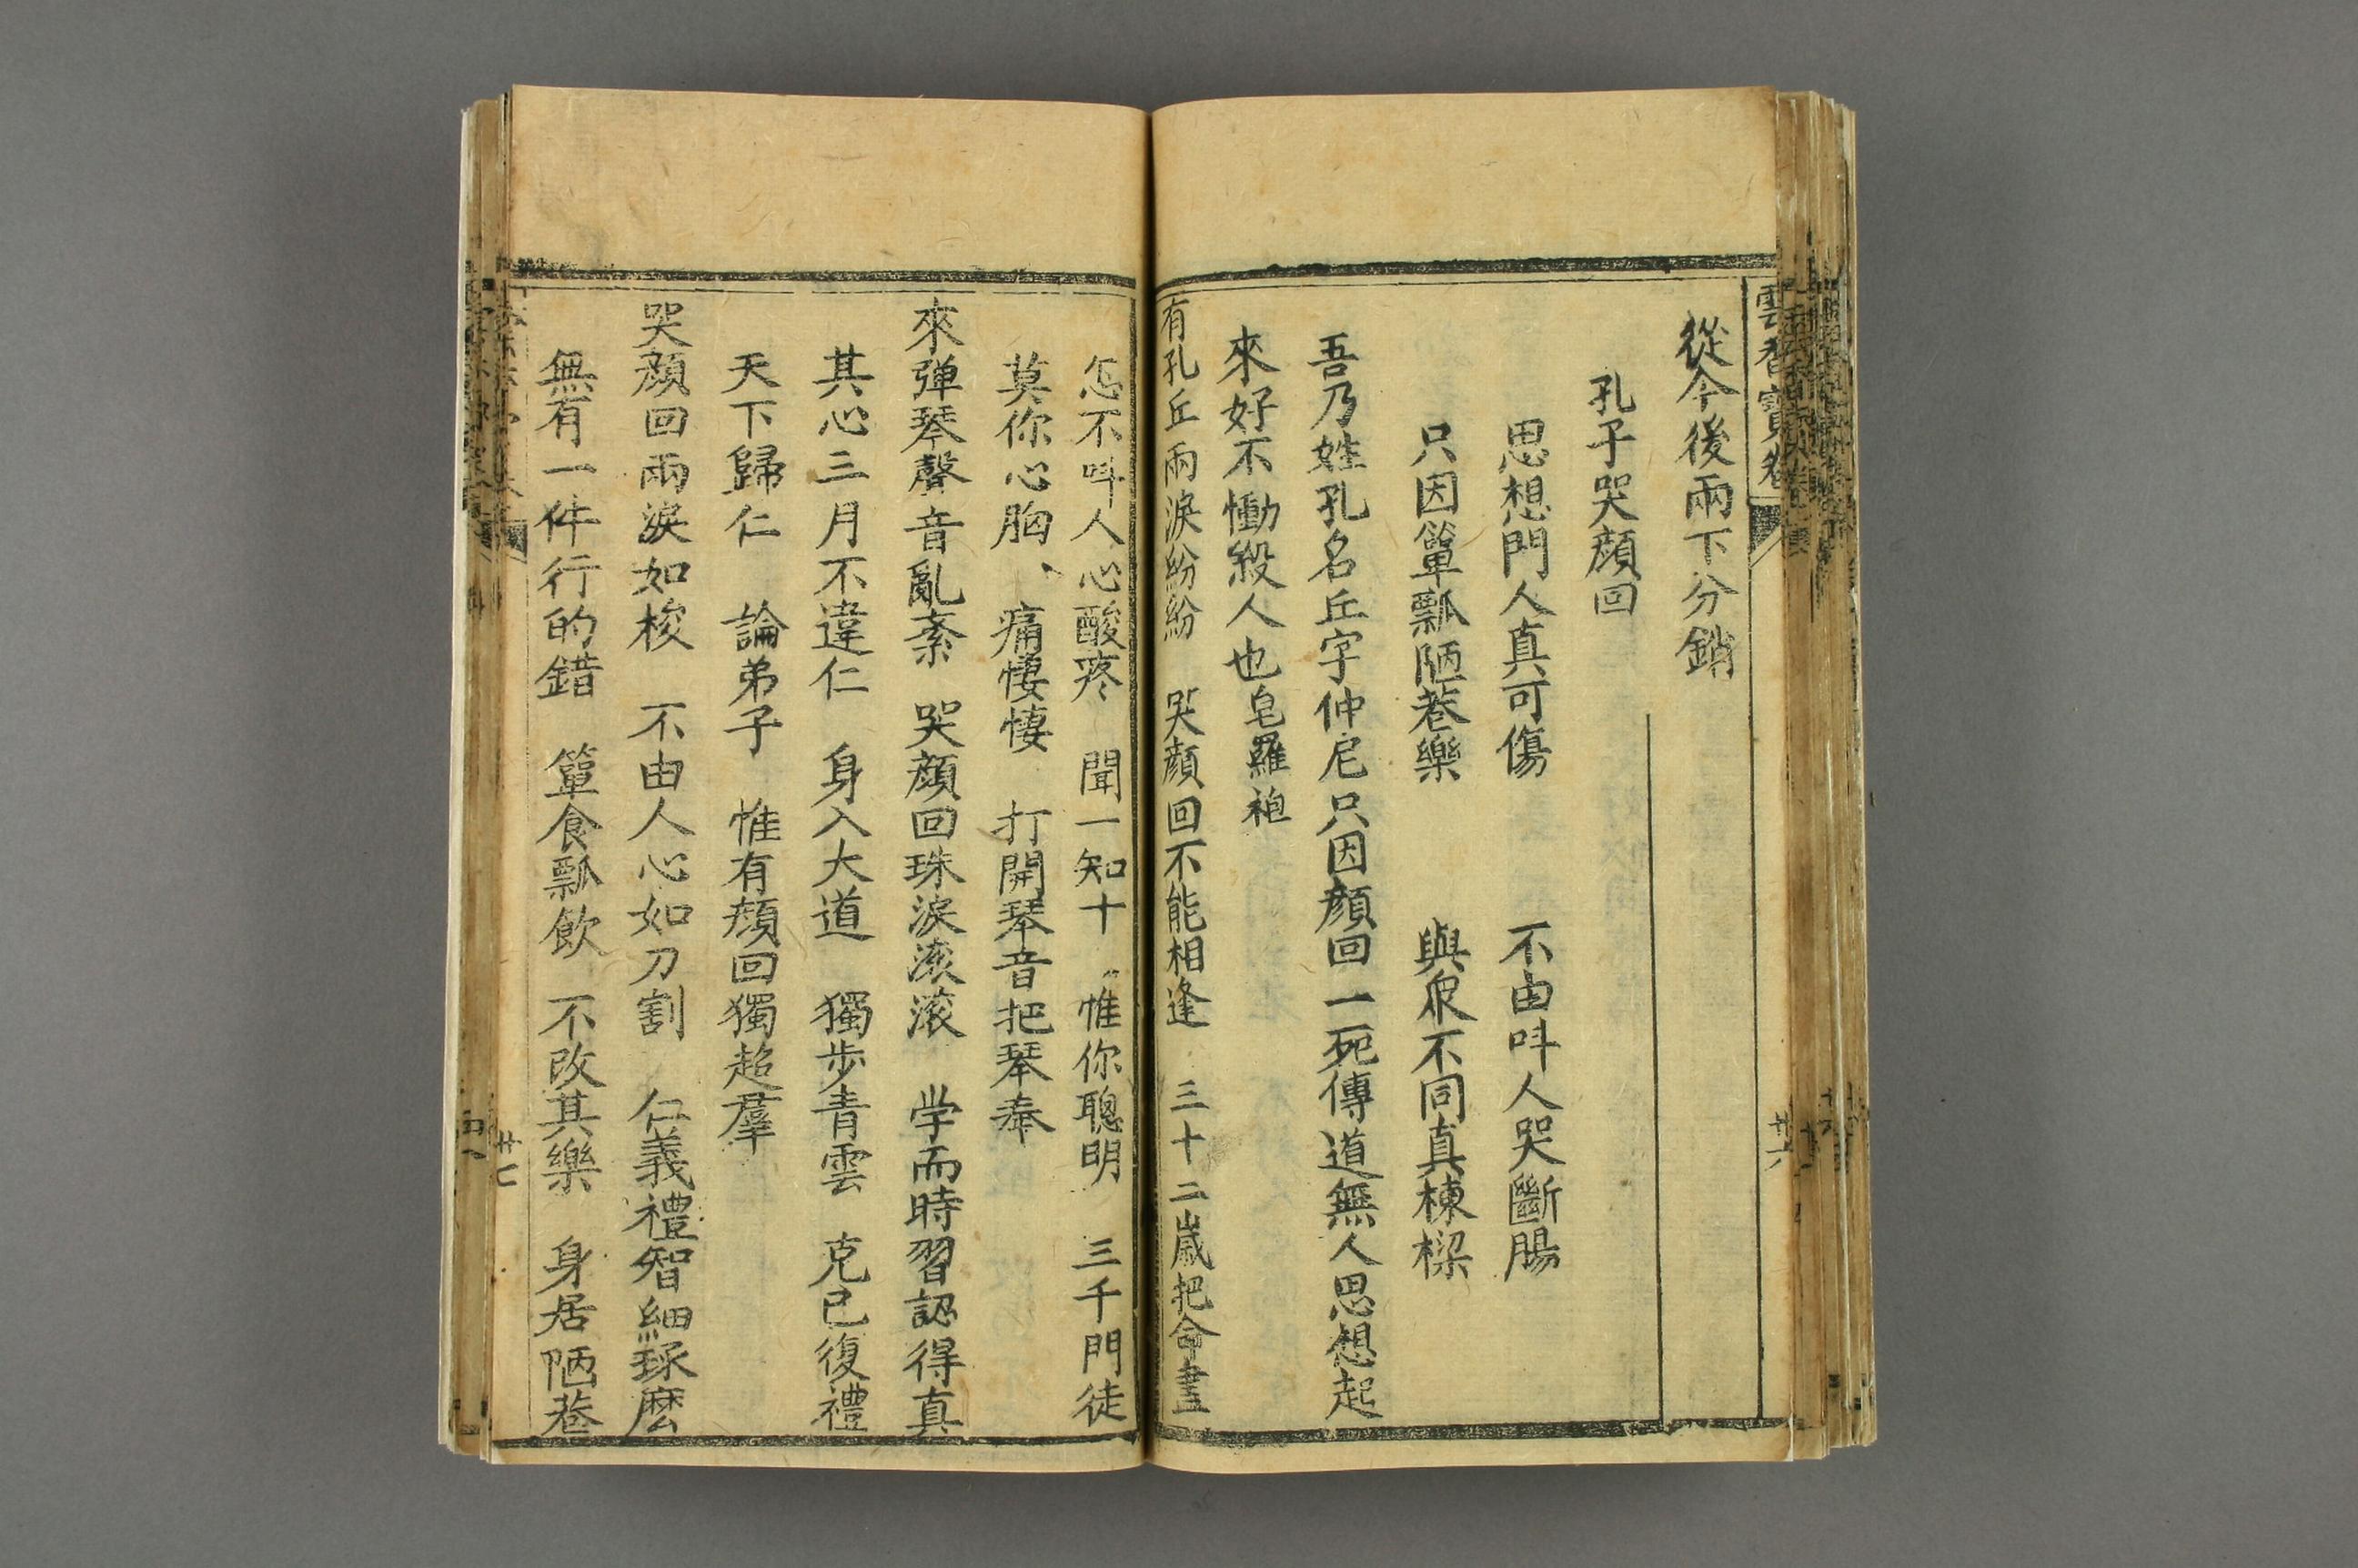 雲香寳卷
從今後兩下分銷
孔子哭顔回
思想門人真可傷 不由呌人哭斷腸
只因簞瓢陋巷樂 與衆不同真棟樑
吾乃姓孔名丘字仲尼只因顔回一死傳道無人思想起
來好不慟殺人也皂羅袍
有孔丘兩淚紛紛 哭顔回不能相逢 三十二歲把命盡
廿六
怎不呌人心酸疼 聞一知十 惟你聰明 三千門徒
莫你心胸、痛悽悽 打開琴音把琴奉
來弹琴聲音亂紊 哭顔回珠淚滚滚 学而時習認得真
其心三月不違仁 身入大道 獨步青雲 克己復禮
天下歸仁 論弟子 惟有顔回獨超羣
哭顔回兩淚如梭 不由人心如刀割 仁義禮智細琢麽
無有一件行的錯 簞食瓢飲 不改其樂 身居陋巷
廿七